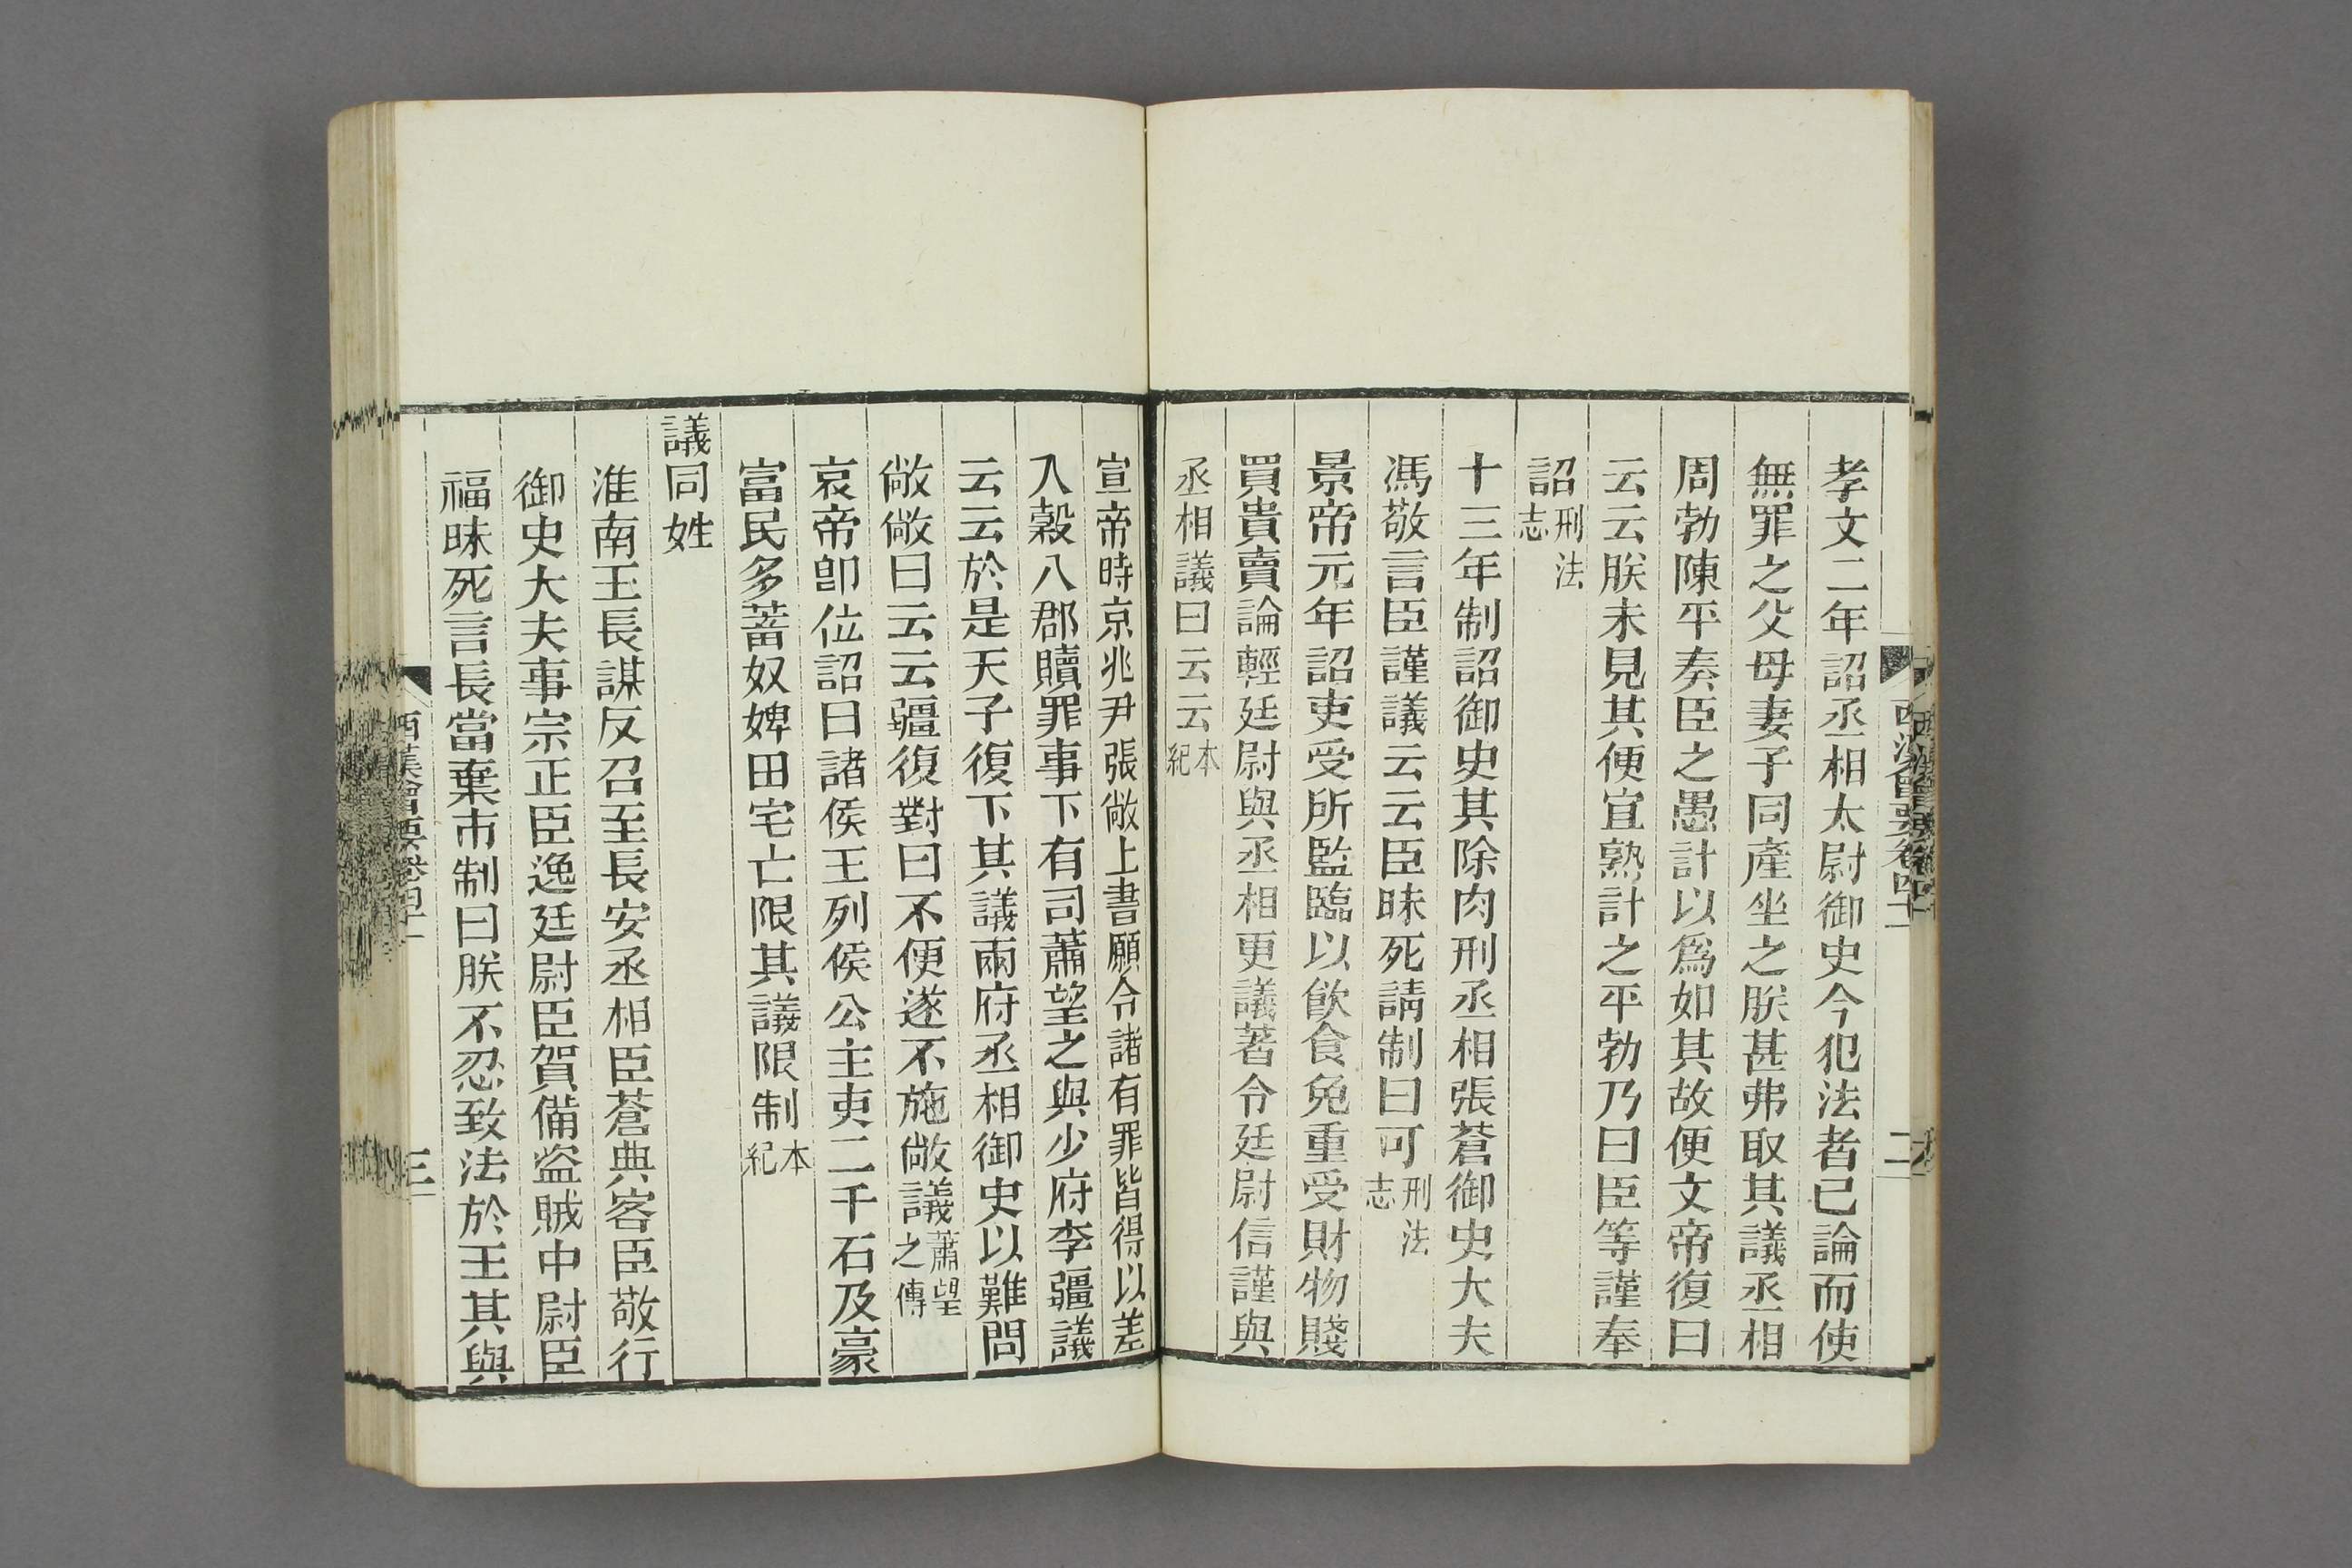 孝文二年詔丞相太尉御史今犯法者已論而使
無罪之父母妻子同產坐之朕甚弗取其議丞相
周勃陳平奏臣之愚計以爲如其故便文帝復曰
云云朕未見其便宜熟計之平勃乃曰臣等謹奉
詔刑法志
十三年制詔御史其除肉刑丞相張蒼御史大夫
馮敬言臣謹議云云臣昧死請制曰可刑法志
景帝元年詔吏受所監臨以飮食免重受財物賤
買貴賣論輕廷尉與丞相更議著令廷尉信謹與
丞相議曰云云本紀
宣帝時京兆尹張敞上書願令諸有罪皆得以差
入穀八郡贖罪事下有司蕭望之與少府李疆議
云云於是天子復下其議兩府丞相御史以難問
敞敞曰云云疆復對曰不便遂不施敞議蕭望之傳
哀帝卽位詔曰諸侯王列侯公主吏二千石及豪
富民多蓄奴婢田宅亡限其議限制本紀
議同姓
淮南王長謀反召至長安丞相臣蒼典客臣敬行
御史大夫事宗正臣逸廷尉臣賀備盜賊中尉臣
福昧死言長當棄市制曰朕不忍致法於王其與
西漢會要卷四十一
三